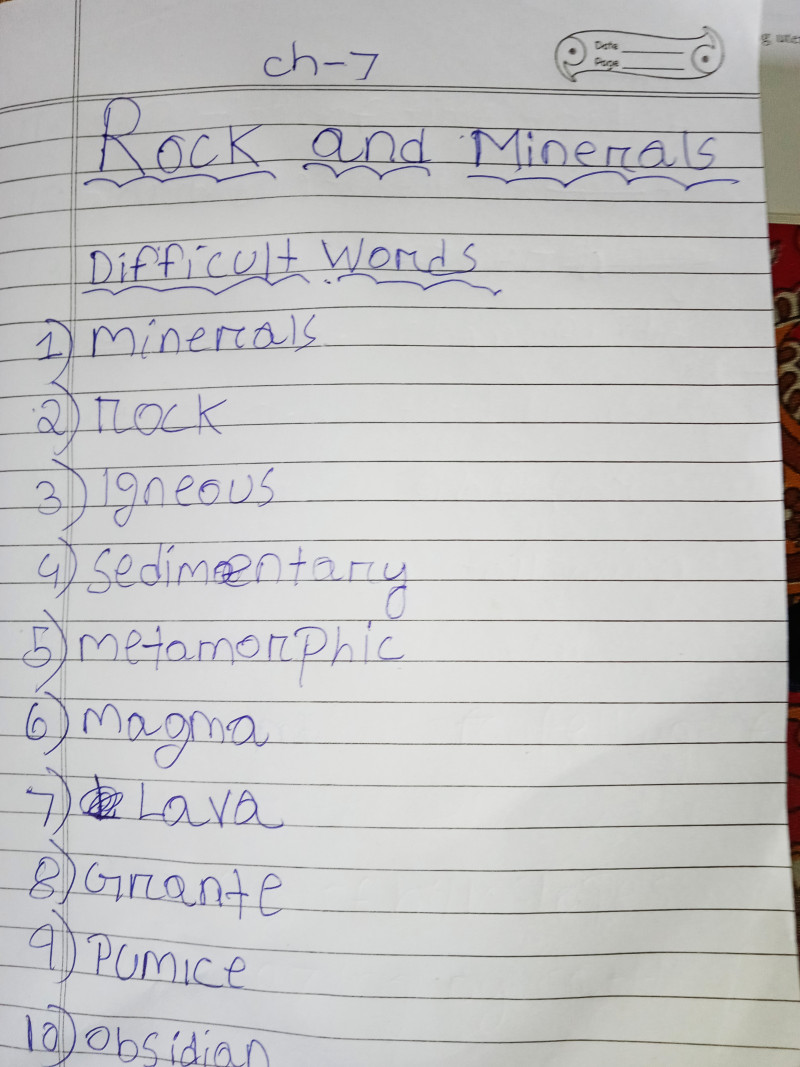 ch-7
Date
Page
Rock and Minerals
Difficult Words
1) minerals
2) rock
3) igneous
4) sedimentary
5) metamorphic
6) magma
7) Lava
8) Grante
9) Pumice
10) obsidian